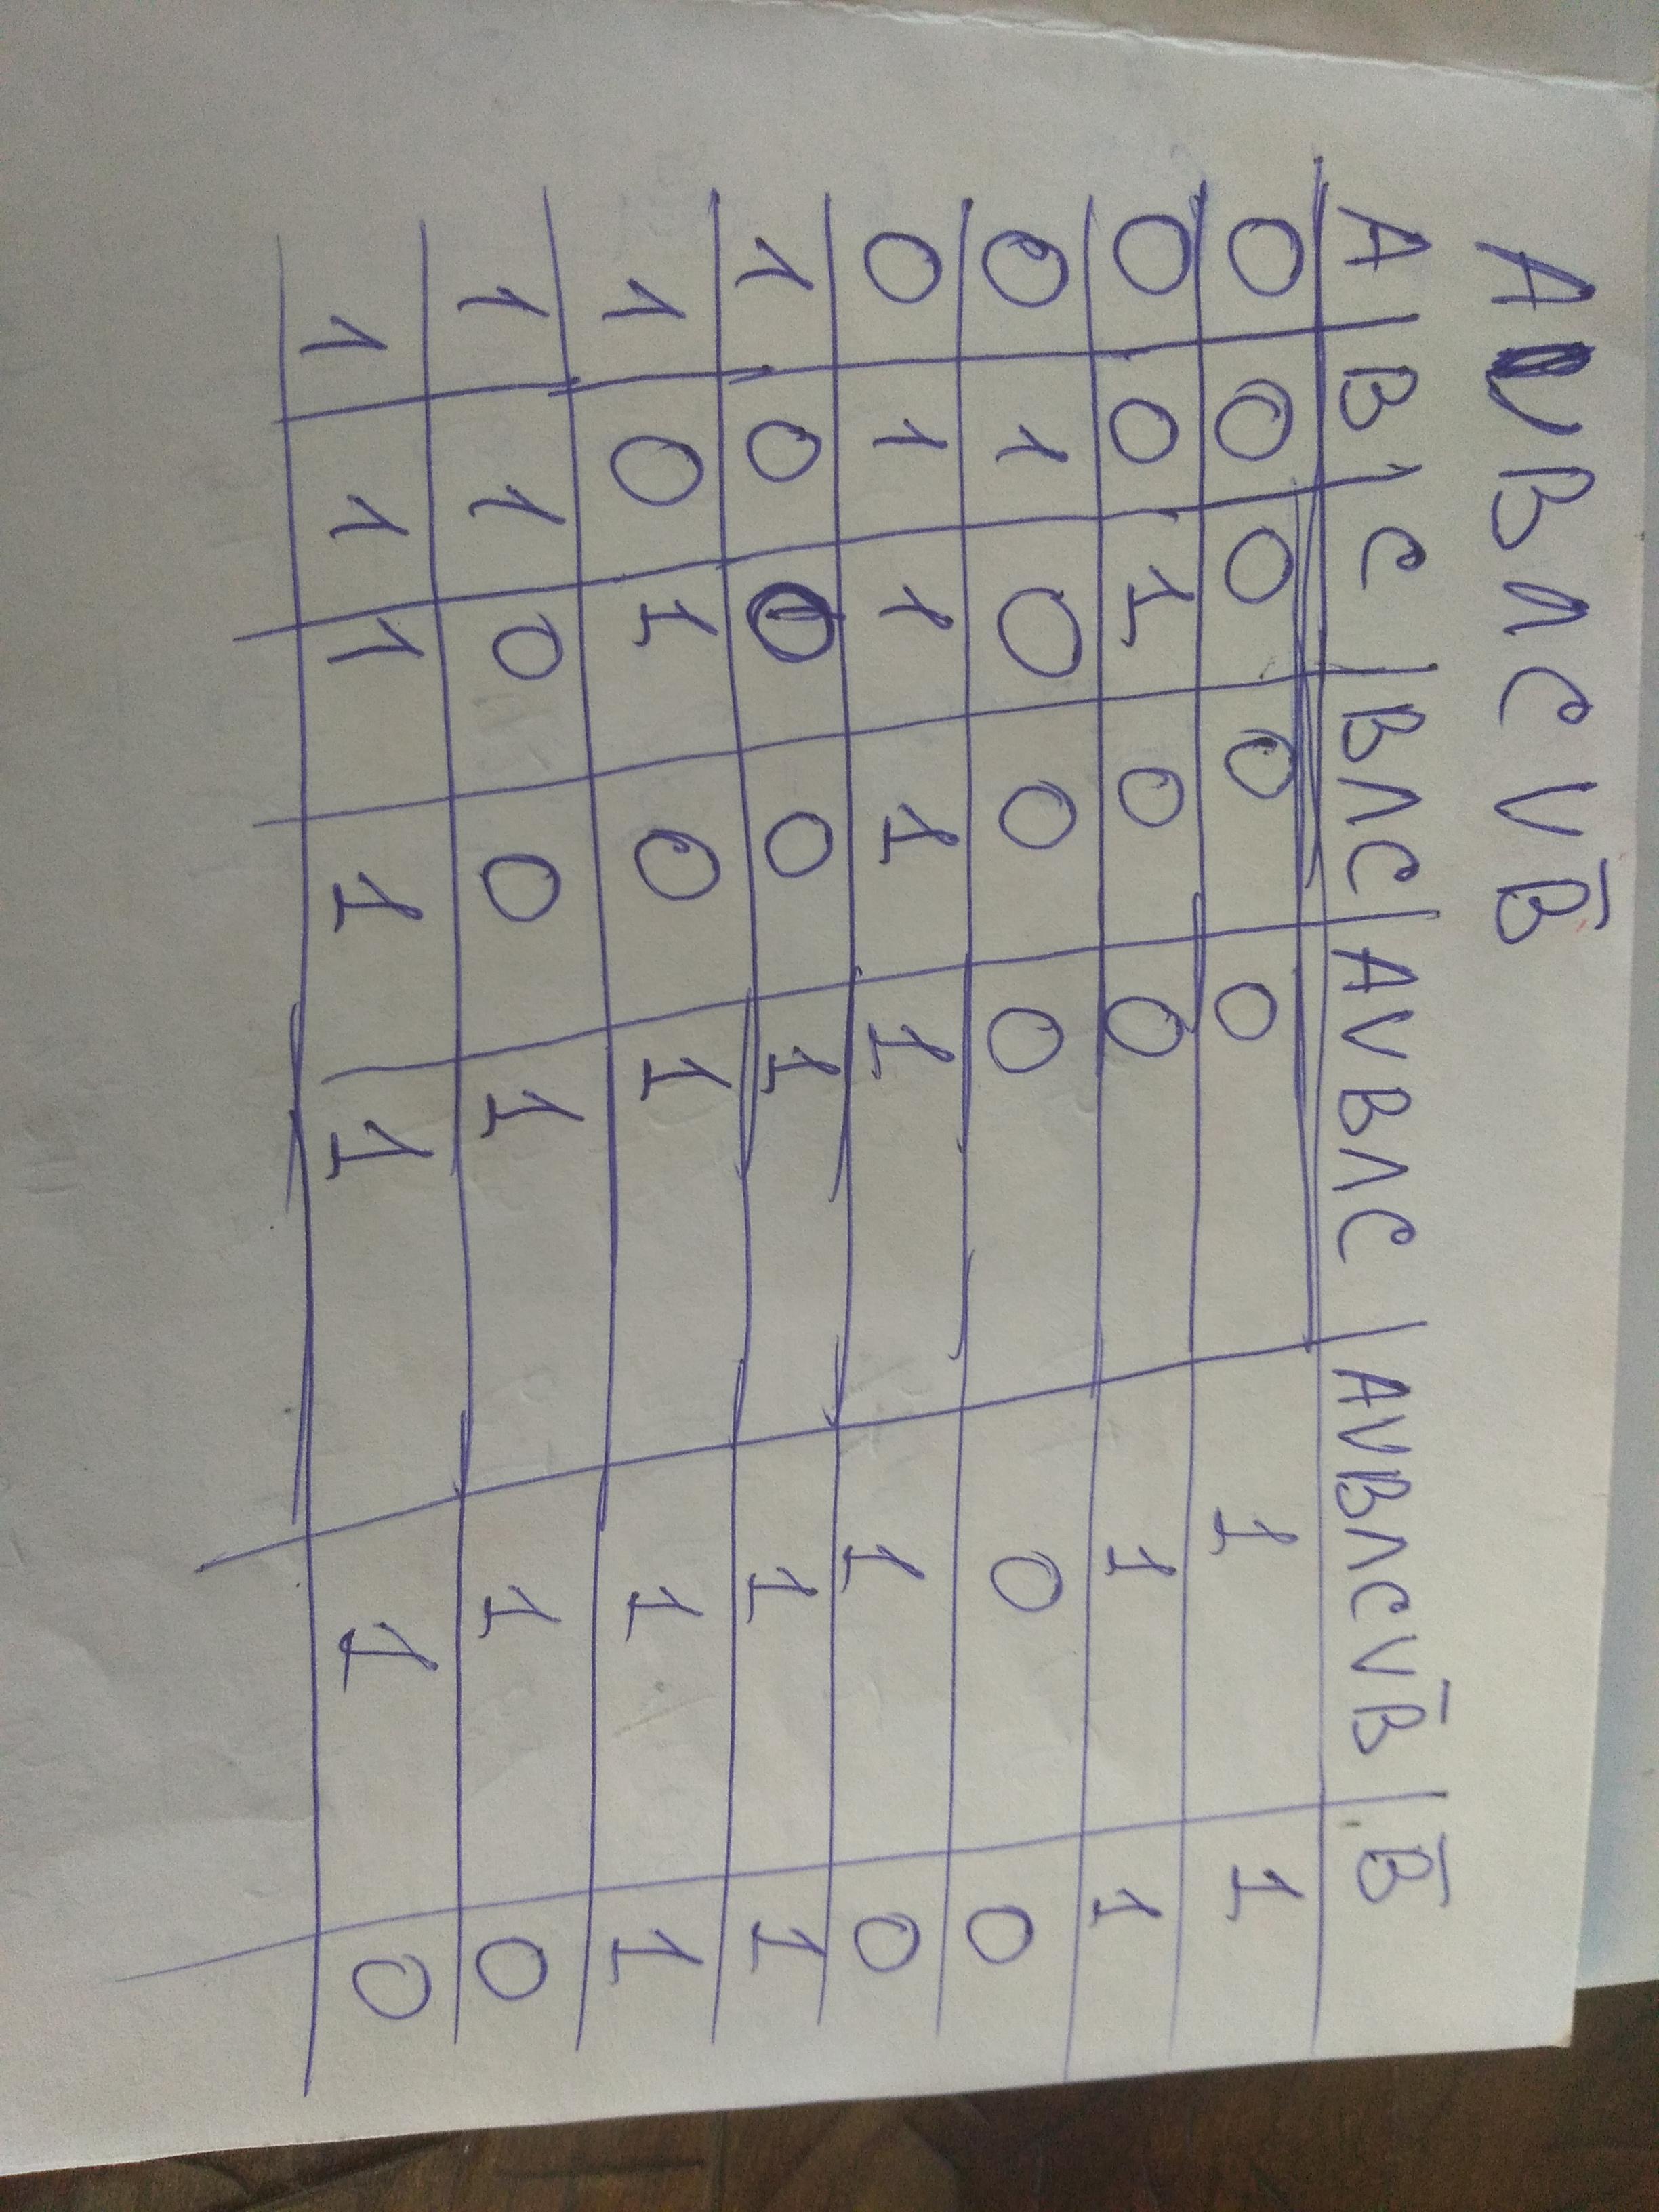 AVBΛCVB̄
A | B | C | BΛC | AVBΛC | AVBΛCVB̄ | B̄
0 0 0 0 0 1 1
0 0 1 0 0 1 1
0 1 0 0 0 0 0
0 1 1 1 1 1 0
1 0 0 0 1 1 1
1 0 1 0 1 1 1
1 1 0 0 1 1 0
1 1 1 1 1 1 0